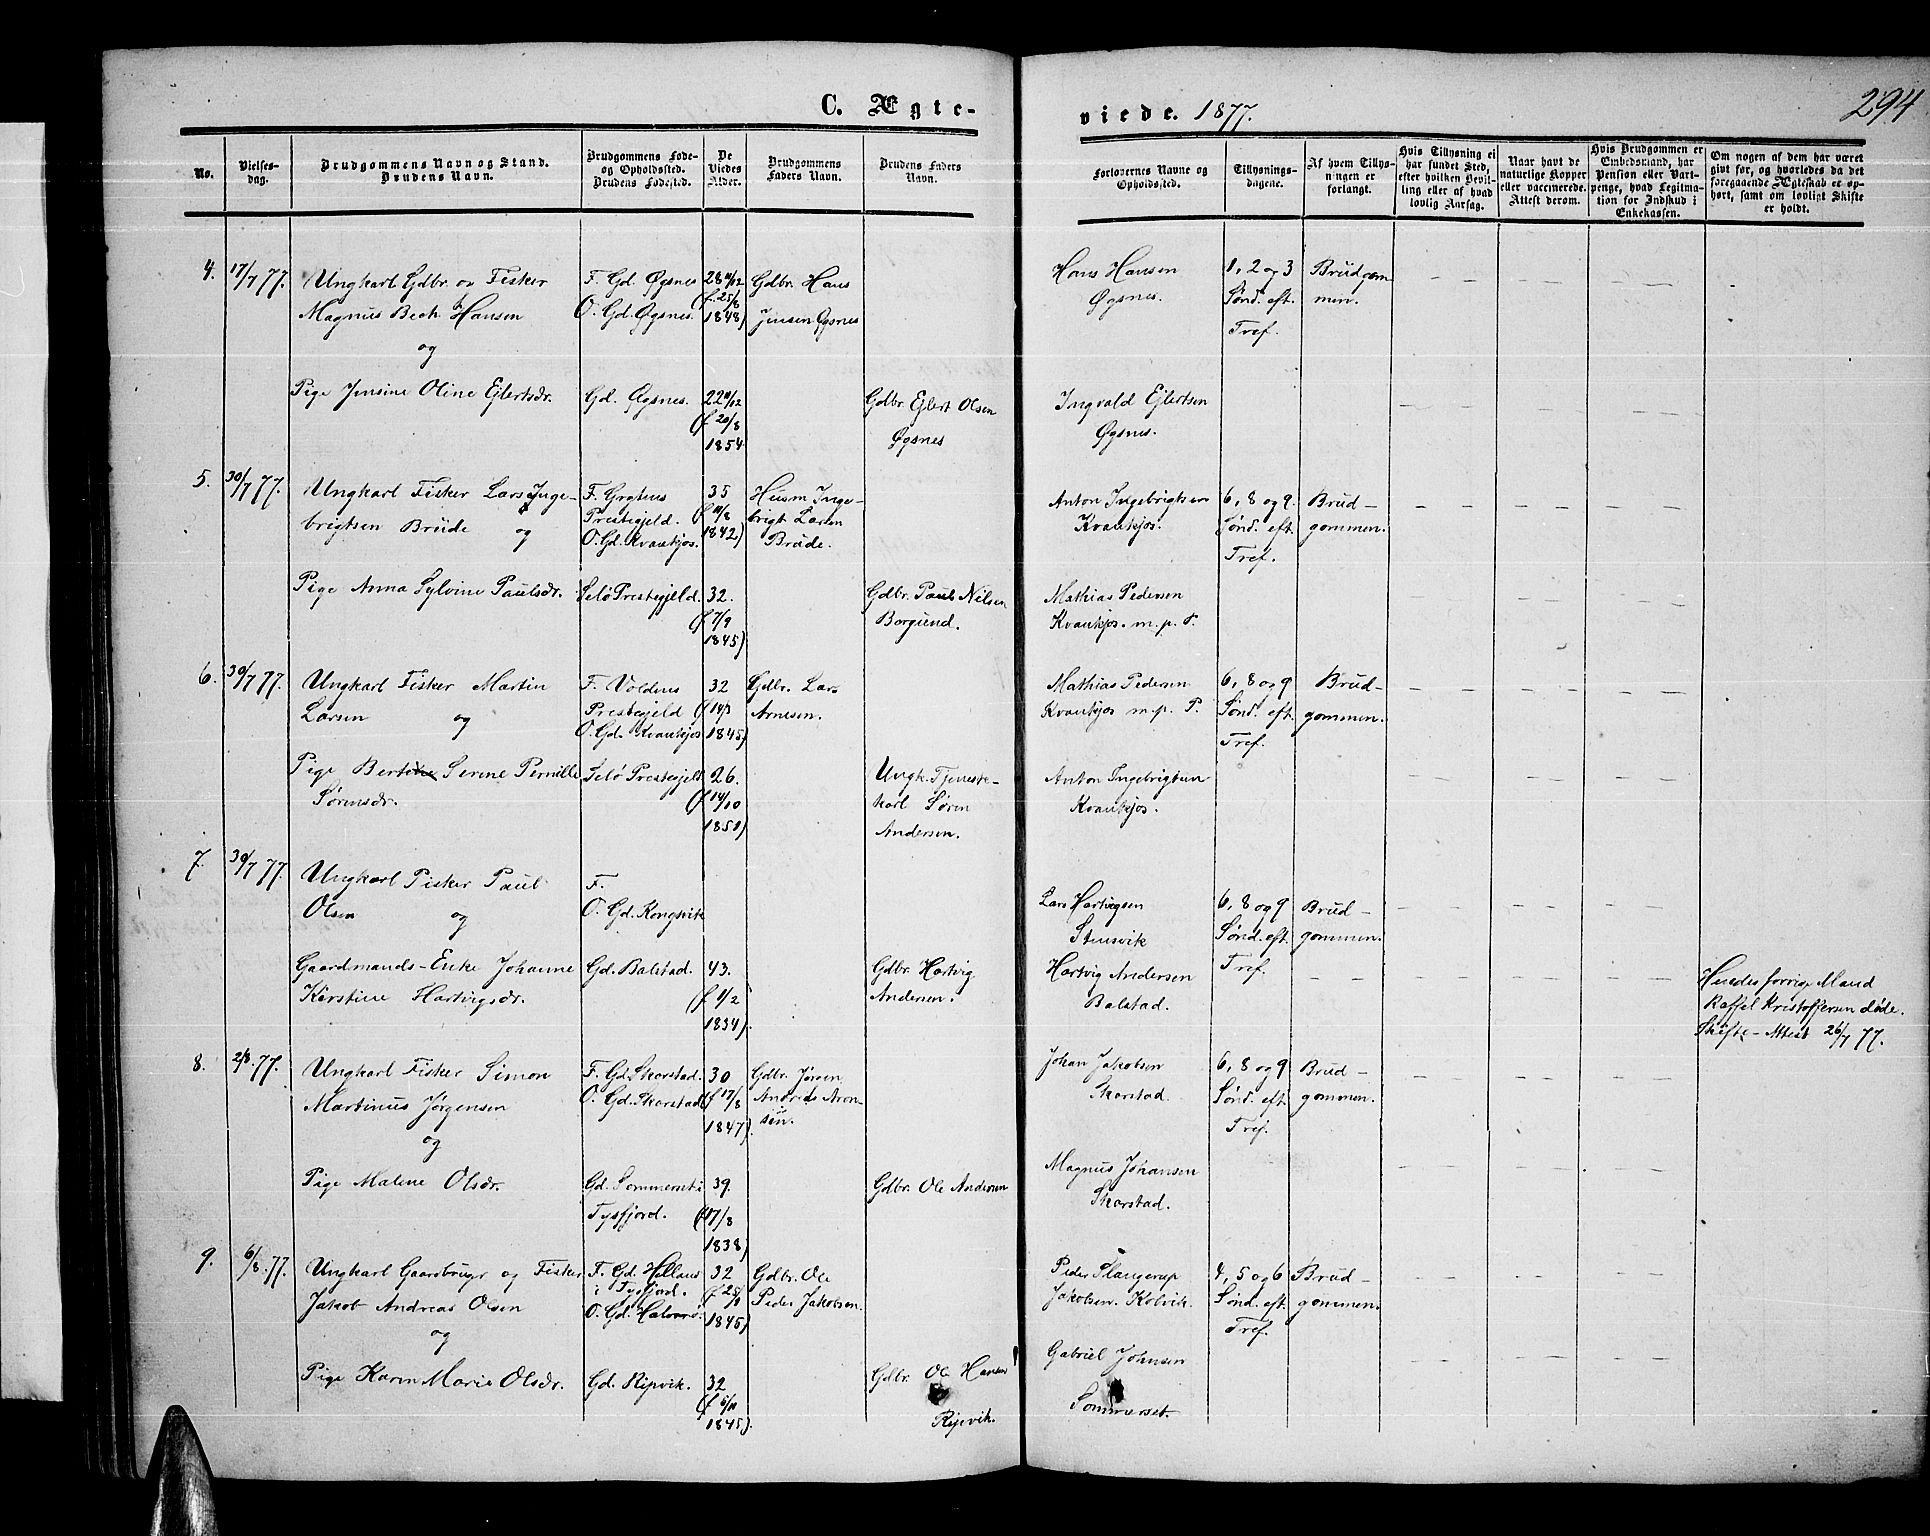 C. Ægte-
viede. 1877.
294
No.
Vielses-
dag.
Brudgommens Navn og Stand.
Brudens Navn.
Brudgommens Føde-
og Opholdssted.
Brudens Fødested.
De
Viedes
Alder.
Brudgommens
Faders Navn.
Brudens Faders
Navn.
Forlovernes Navne og
Opholdssted.
Tillysnings-
dagene.
Af hvem Tillys-
ningen er
forlangt.
Hvis Tillysning ei
har fundet Sted,
efter hvilken Bevil-
ling eller af hvad
lovlig Aarsag.
Naar havt de
naturlige Kopper
eller vaccinerede.
Attest derom.
Hvis Brudgommen er
Embedsmand, har
Pension eller Vart-
penge, hvad Legitima-
tion for Indskud i
Enkekassen.
Om nogen af dem har været
givt før, og hvorledes da det
foregaaende Ægteskab er op-
hørt, samt om lovligt Skifte
er holdt.
4. 17/7 77.
Ungkarl Gdbr. og Fisker
Magnus Bech Hansen
og
Pige Jensine Oline Ejlertsdr.
F. Gd. Øgsnes
O. Gd. Øgsnes.
Gd. Øgsnes.
28 11/12
(f. 25/8
1848)
22 11/12
(f 20/8
1854
Gdbr. Hans
Jensen Øgsnes
Gdbr. Ejlert Olsen
Øgsnes
Hans Hansen
Øgsnes.
Ingvald Ejlertsen
Øgsnes.
1, 2 og 3
Sønd. eft.
Tref.
Brudgom
men.
5. 30/7 77.
Ungkarl Fisker Lars Inge-
brigtsen Brude og
Pige Anna Sylvine Paulsdr.
F.
Prestegjeld.
O. Gd. Kvankjos.
Selø Prestegjeld.
35
(f 11/8
1842)
32.
(f 7/9
1845)
Husm Inge-
brigt Larsen
Brude.
Gdbr. Paul Nilsen
Borgund.
Anton Ingebrigtsen
Kvankjos.
Mathias Pedersen
Kvankjos. m. p. P.
6, 8 og 9.
Sønd. eft.
Tref.
Brud-
gommen.
6. 30/7 77.
Ungkarl Fisker Martin
Larsen og
Pige Serine Pernille
Sørensdr.
F. Voldens
Prestegjeld
O. Gd. Kvankjos
Selø Prestegjeld
32
1845)
26.
(f 14/10
Gdbr. Lars
Arnesen.
Ungk. Tjeneste-
karl Søren
Andersen.
Mathias Pedersen
Kvankjos m. p. P.
Anton Ingebrigtsen
Kvankjos.
6, 8 og 9
Sønd. eft.
Tref.
Brud-
gommen.
7. 30/7 77.
Ungkarl Fisker Paul
Olsen og
Gaardmands-Enke Johanne
Kerstine Hartvigsdr.
F.
O. Gd. Kongsvik
Gd. Balstad.
43.
(f 1/2
1834).
Gdbr. Hartvig
Andersen.
Lars Hartvigsen
Stensvik
Hartvig Andersen
Balstad.
6, 8 og 9
Sønd. eft.
Tref.
Brud-
gommen.
Hendes forrige Mand
Raffel Kristoffersen døde.
Skifte-Attest 26/7 77.
8. 2/8. 77.
Ungkarl Fisker Simon
Martinus Jørgensen
og
Pige Malene Olsdr.
F. Gd. Skorstad.
O. Gd. Skorstad
Gd. Sommerset i
Tysfjord.
30
(f 17/8
1847).
39.
(f 17/8
1838)
Gdbr. Jørgen
Andreas Aron-
sen.
Gdbr. Ole Andersen
Johan Jakobsen
Skorstad.
Magnus Johansen
Skorstad.
6, 8 og 9
Sønd. eft.
Tref.
Brud-
gommen.
9. 6/8. 77.
Ungkarl Gaardbruger og Fisker
Jakob Andreas Olsen
og
Pige Karen Marie Olsdr.
F. Gd. Helland
i Tysfjord.
O. Gd.
Gd. Ripvik.
32
1845)
32
(f 6/11
1845).
Gdbr. Ole
Peder Jakobsen.
Gdbr. Ole Hansen
Ripvik.
Peder
Jakobsen. Kolvik.
Gabriel Johnsen
Sommerset.
4, 5 og 6
Sønd. eft.
Tref.
Brud-
gommen.